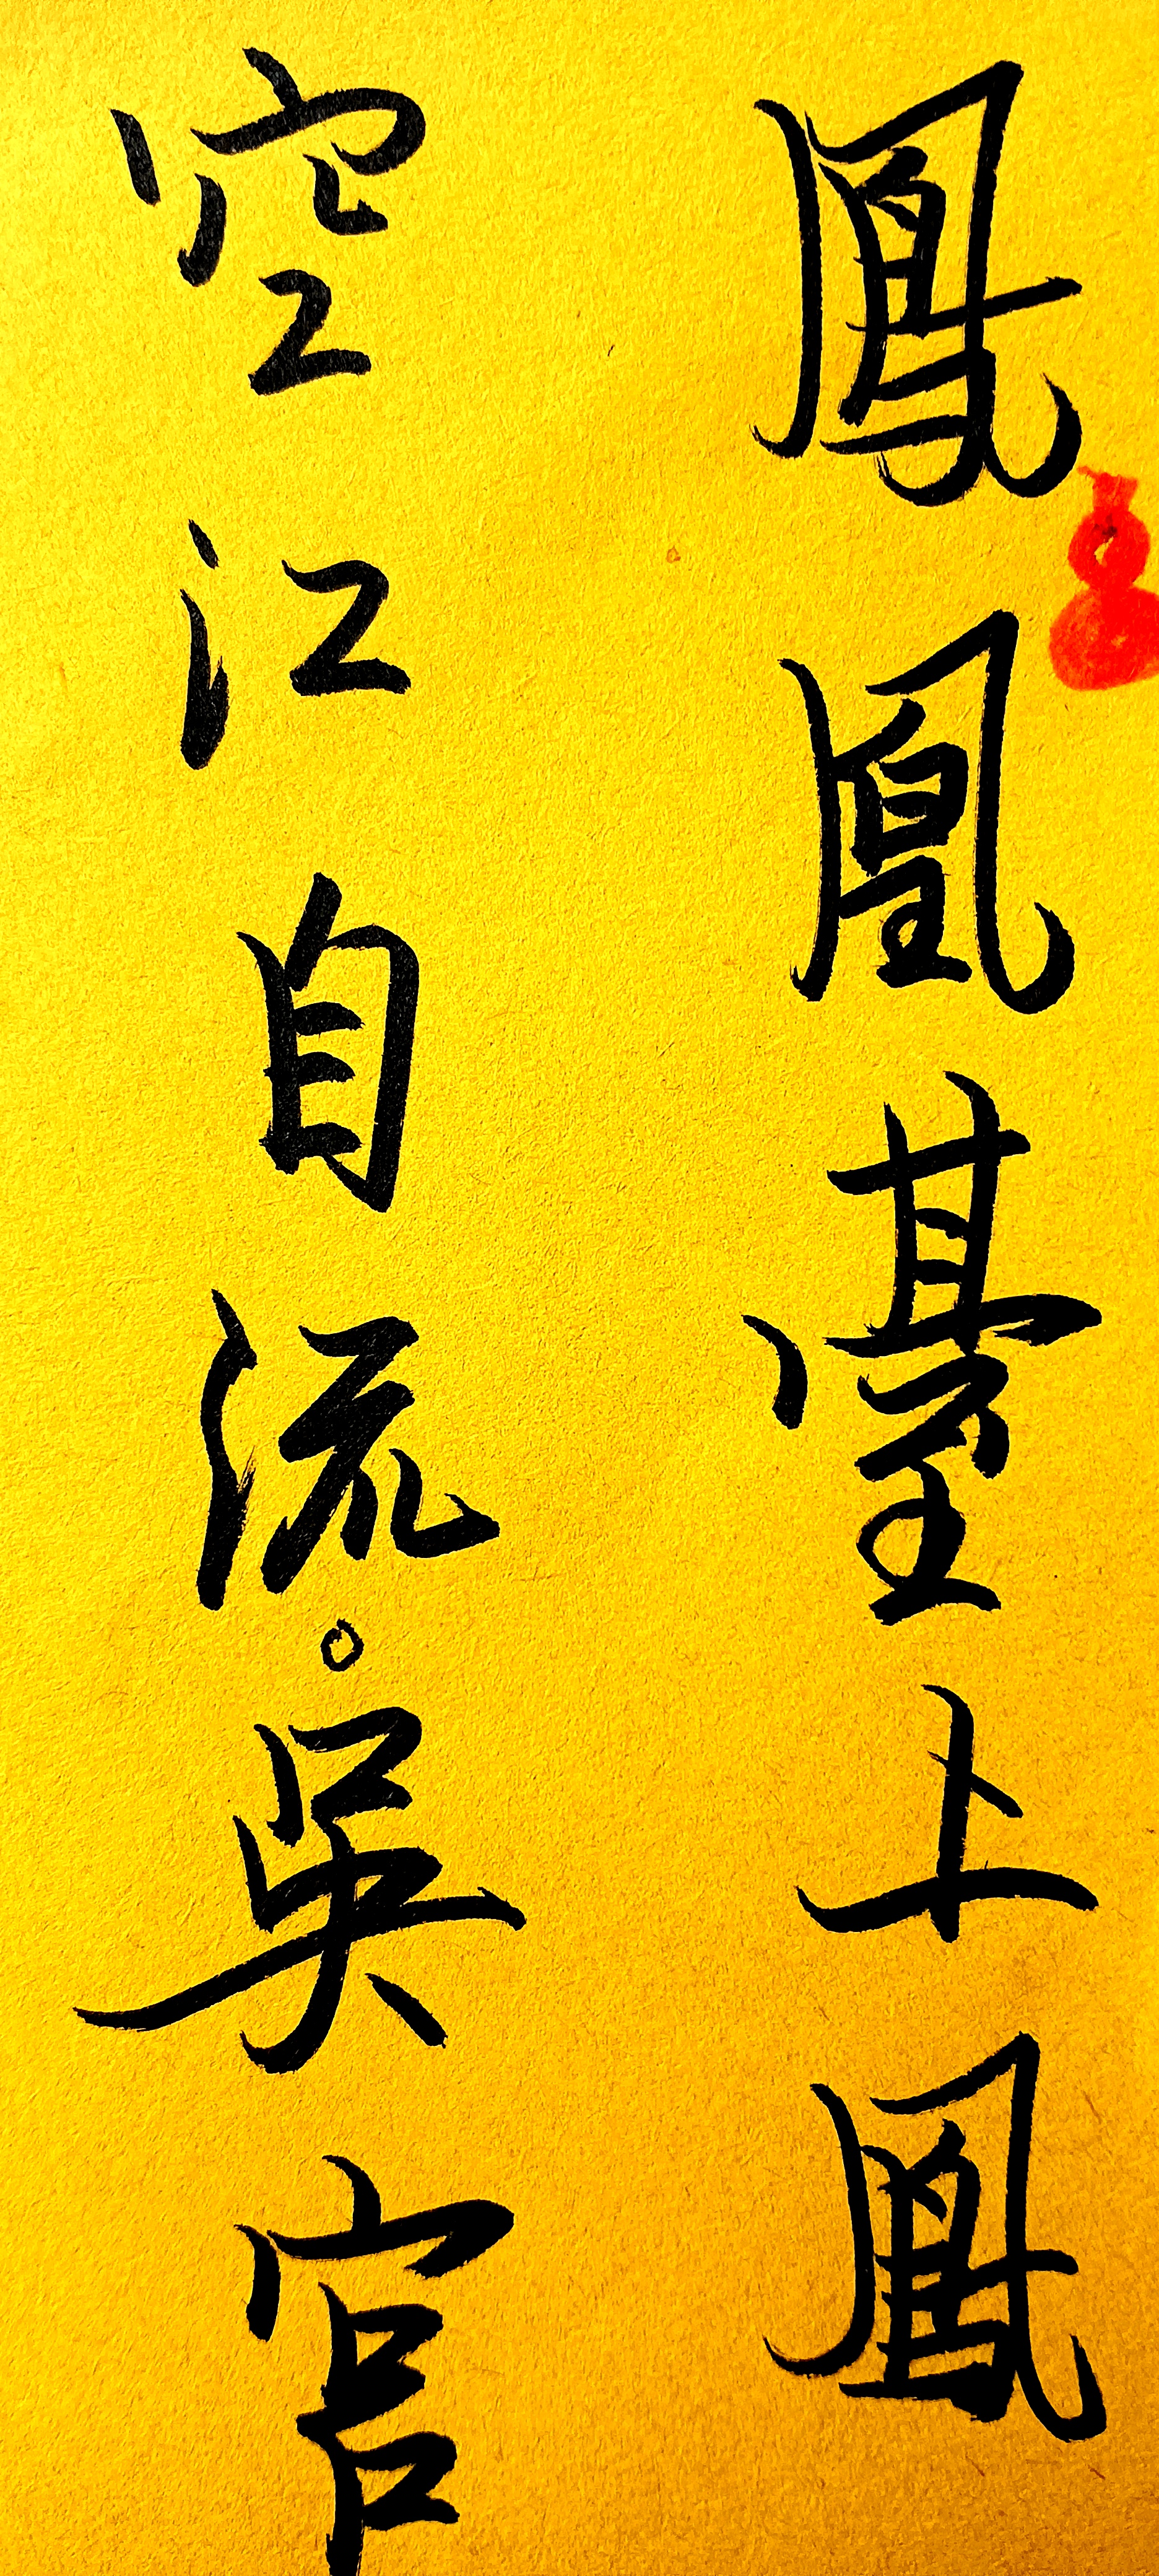 鳳凰臺上鳳
空江自流。吳宫